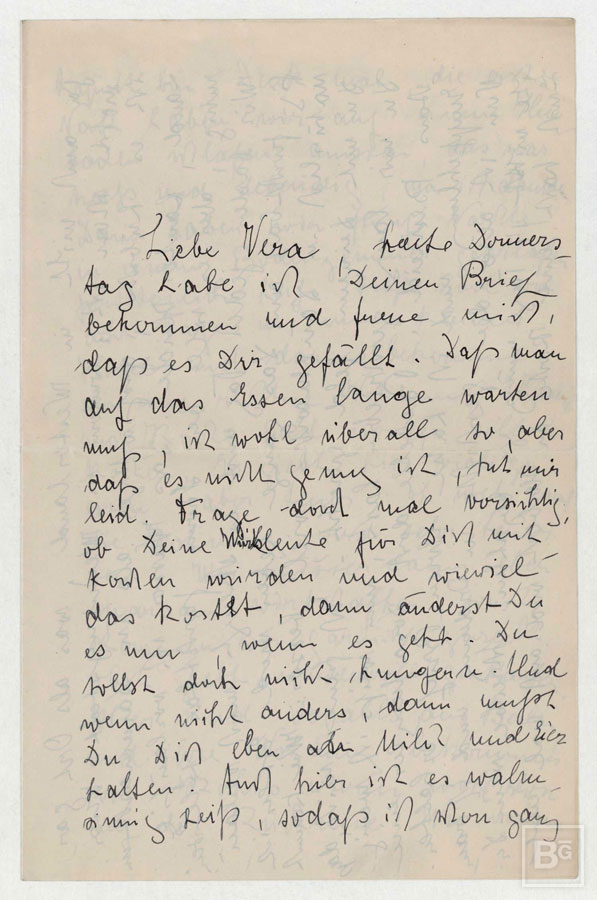 Liebe Vera, heute Donners-
tag habe ich Deinen Brief
bekommen und freue mich,
daß es Dir gefällt. Daß man
auf das Essen lange warten
muß, ist wohl überall so, aber
daß es nicht genug ist, tut mir
leid. Frage doch mal vorsichtig,
ob Deine Wirtsleute für Dich mit-
kochen würden und wieviel
das kostet, dann änderst Du
es nur, wenn es geht. Du
sollst doch nicht hungern. Und
wenn nicht anders, dann mußt
Du Dich eben an Milch und Eier
halten. Auch hier ist es wahn-
sinnig heiß, sodaß ich schon ganz
BG